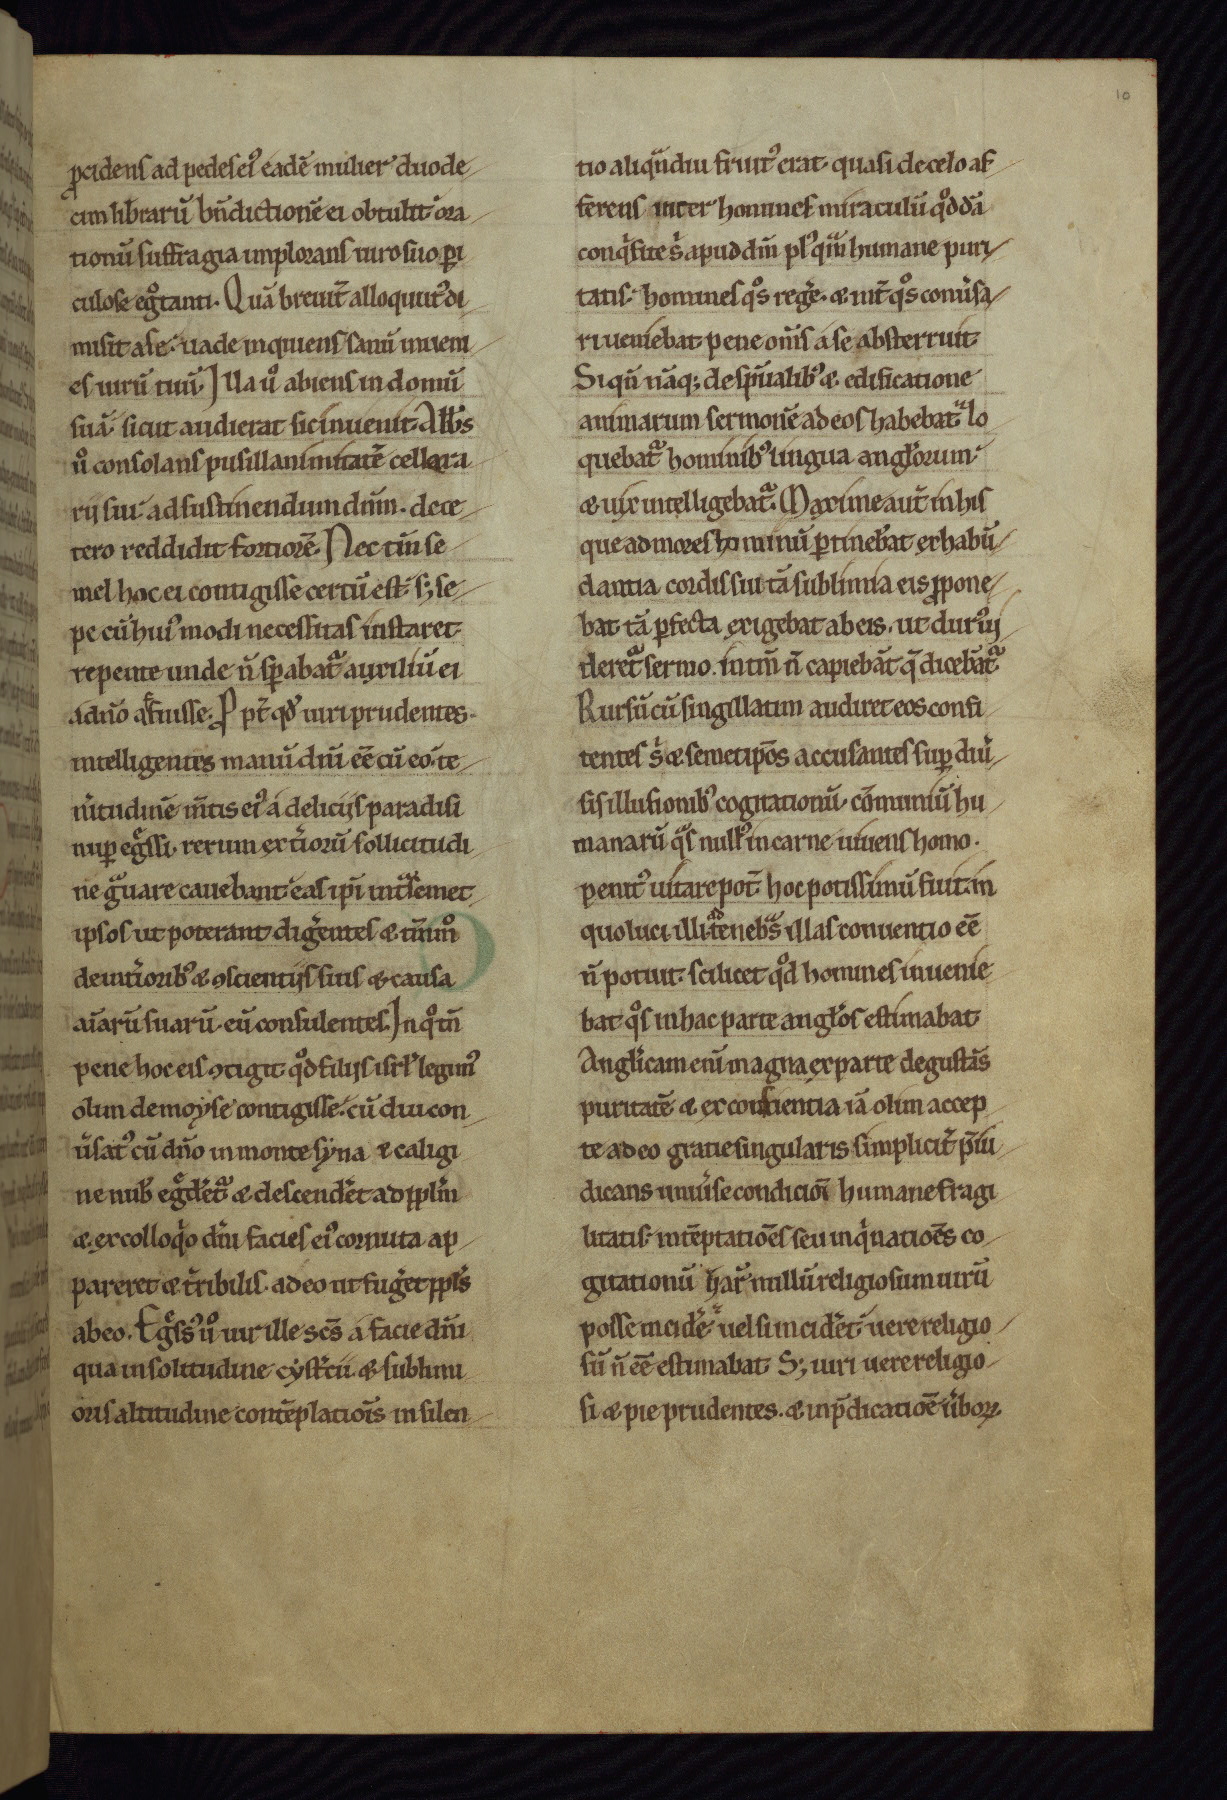 10
ꝓcidens ad pedes eiꝰ eadē mulier duode
cim librarū bn̄dictionē ei obtulit ora
tionū suffragia implorans uiro suo ꝑi
culose egͦtanti. Quā breuit̄ alloquut̾ di
misit a se. uade inquiens sanū inueni
es uirū tuū. Illa ůͦ abiens in domū
suā sicut audierat sic inuenit. Abb̄s
ůͦ consolans pusillanimitatē cellara
rij sui ad sustinendum dn̄m. de ce
tero reddidit fortiorē. Nec tn̄ se
mel hoc ei contigisse certū est. s; se
pe cū huiꝰmodi necessitas instaret
repente unde n̄ sꝑabat᷑ auxiliū ei
a dn̄o affuisse. Ppt̄ qd̓ uiri prudentes
intelligentes manū dn̄i eē cū eo. te
n̓itudinē m̄tis eiꝰ a delicijs paradisi
nuꝑ egͣssi. rerum ext̓iorū sollicitudi
ne gͣuare cauebant. eas ipi int̓ semet
ipsos ut poterant dig̓entes & tm̄mͦ
de int̓ioribꝰ & ꝯscientijs suis & causa
aīarū suarū eū consulentes. In qͦ tn̄
pene hoc eis ꝯtigit qd̓ filijs isrl̓ legimꝰ
olim de moyse contigisse. cū diu con
u̓satꝰ cū dn̄o in monte syna & caligi
ne nub̓ egͣdet᷑ & descend̓et ad ppl̓m
& ex colloqͥo dn̄i facies eiꝰ cornuta ap
pareret & t̓ribilis. adeo ut fug̓et ppl̓s
ab eo. Egͣssꝰ ůͦ uir ille scs̄ a facie dn̄i
qua in solitudine cyst̓cii & sublimi
oris altitudine contēplatiōis in silen
tio aliqn̄diu fruitꝰ erat. quasi de celo af
ferens inter homines miraculū qd̓dā
conqͥsite s̓ apud dm̄ plꝰ qͣm humane puri
tatis. homines qͦs reg̓e. & int̓ qͦs conu̓sa
ri ueniebat pene om̄s a se absterruit
Siqn̄ nāq; de sp̄ualibꝰ & edificatione
animarum sermonē ad eos habebat. lo
quebat᷑ hominibꝰ lingua angl̓orum.
& uix intelligebat᷑. Maxime aut̄ in his
que ad mores hominū ꝑtinebat ex habū
dantia cordis sui tā sublimia eis ꝓpone
bat tā ꝑfecta exigebat ab eis. ut durꝰ ui
deret᷑ sermo. in tm̄ n̄ capiebāt q̄ dicebāt᷑
Rursū cū singillatim audiret eos confi
tentes s̓ & semetipōs accusantes suꝑ diu̓
sis illusionibꝰ cogitationū cōmuniū hu
manarū qͣs null̓ꝰ in carne uiuens homo.
penitꝰ uitare pot̄. hoc potissimū fuit. in
quo luci illi ad tenebͣs illas conuentio eē
n̄ potuit. scilicet qd̓ homines inuenie
bat qͦs in hac parte angl̓os estimabat
Angl̓icam enī magna ex parte degustās
puritatē & ex conscientia iā olim accep
te adeo gratie singularis simplicit̓ p̄iu
dicans uniu̓se condicioī humane fragi
litatis. in tēptatiōes seu inqͥnatiōes co
gitationū har̓ nullū religiosum uirū
posse incid̓e. uel si incid̓et uere religio
sū n̄ eē estimabat. S; uiri uere religio
si & pie prudentes. & in p̄dicatiōe u̓boꝝ